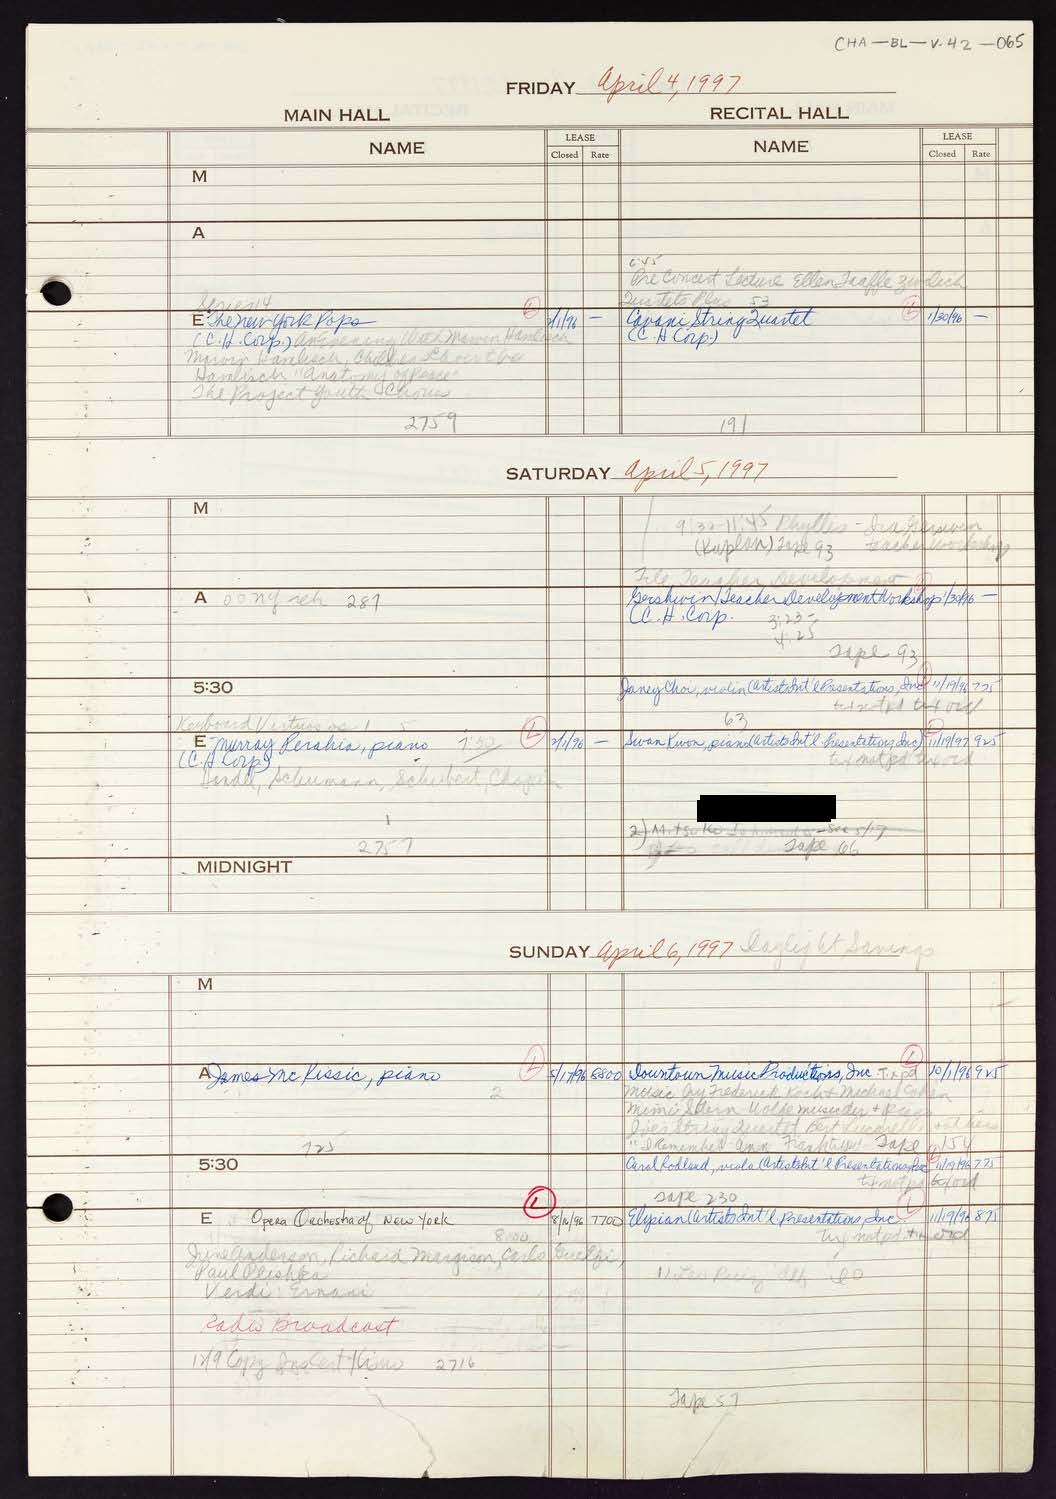 CHA-BL-V.42-065
FRIDAY April 4, 1997
MAIN HALL RECITAL HALL
NAME LEASE Closed Rate NAME LEASE Closed Rate
M
A
6:45
Pre Concert Lecture Ellen Taaffe Zwilich
Series 4 Quartets Plus 53
E The New York Pops L 2/1/96 — Cavani String Quartet L 1/30/96 —
(C.H. Corp.) Marvin Hamlisch (C.H. Corp.)
Marvin Hamlisch,
Hamlisch "Anatomy of Peace"
The Project Youth Chorus
2759 191
SATURDAY April 5, 1997
M
9:30-11:45 Phyllis - Ira Gershwin
(Kaplan) Tape 93 teacher workshop
Teacher Development
A 287 Gershwin Teacher Development Workshop 1/30/96 —
(C.H. Corp. 3:25-
4:25
Tape 93
5:30 Janey Choi, violin (Artists Int'l Presentations, Inc) L 11/19/96 775
tix not pd tix ord
Keyboard Virtuosos 1 63
E Murray Perahia, piano 7:30 L 2/1/96 — Swan Kwon, piano (Artists Int'l Presentations, Inc) L 11/19/97 925
(C.H. Corp) tix not pd tix ord
Handel, Schumann, Schubert, Chopin
2) Mitsuko - See 5/17
2757 Tape 66
MIDNIGHT
SUNDAY April 6, 1997 Daylight Savings
M
A James McKissic, piano L 5/17/96 8800 Downtown Music Productions, Inc Tix pd L 10/1/96 925
2 Music by Frederick Koch + Michael Cohen
Mimi Stern Wolfe
String Quartet Bert Lucarelli + others
"I Remember" Ann Frank Tape 154
725
5:30 Carol Rodland, viola (Artists Int'l Presentations, Inc L 11/19/96 775
tix not pd tix ord
Tape 230
E OPERA ORCHESTRA of NEW YORK L 8/16/96 7700 Elysian (Artists Int'l Presentations, Inc. L 11/19/96 875
8:00 tix not pd tix ord
June Anderson, Richard Margison, Carlo Guelfi,
Paul Plishka
Verdi: Ernani
Radio Broadcast
12/9 Copy 2716
Tape 57